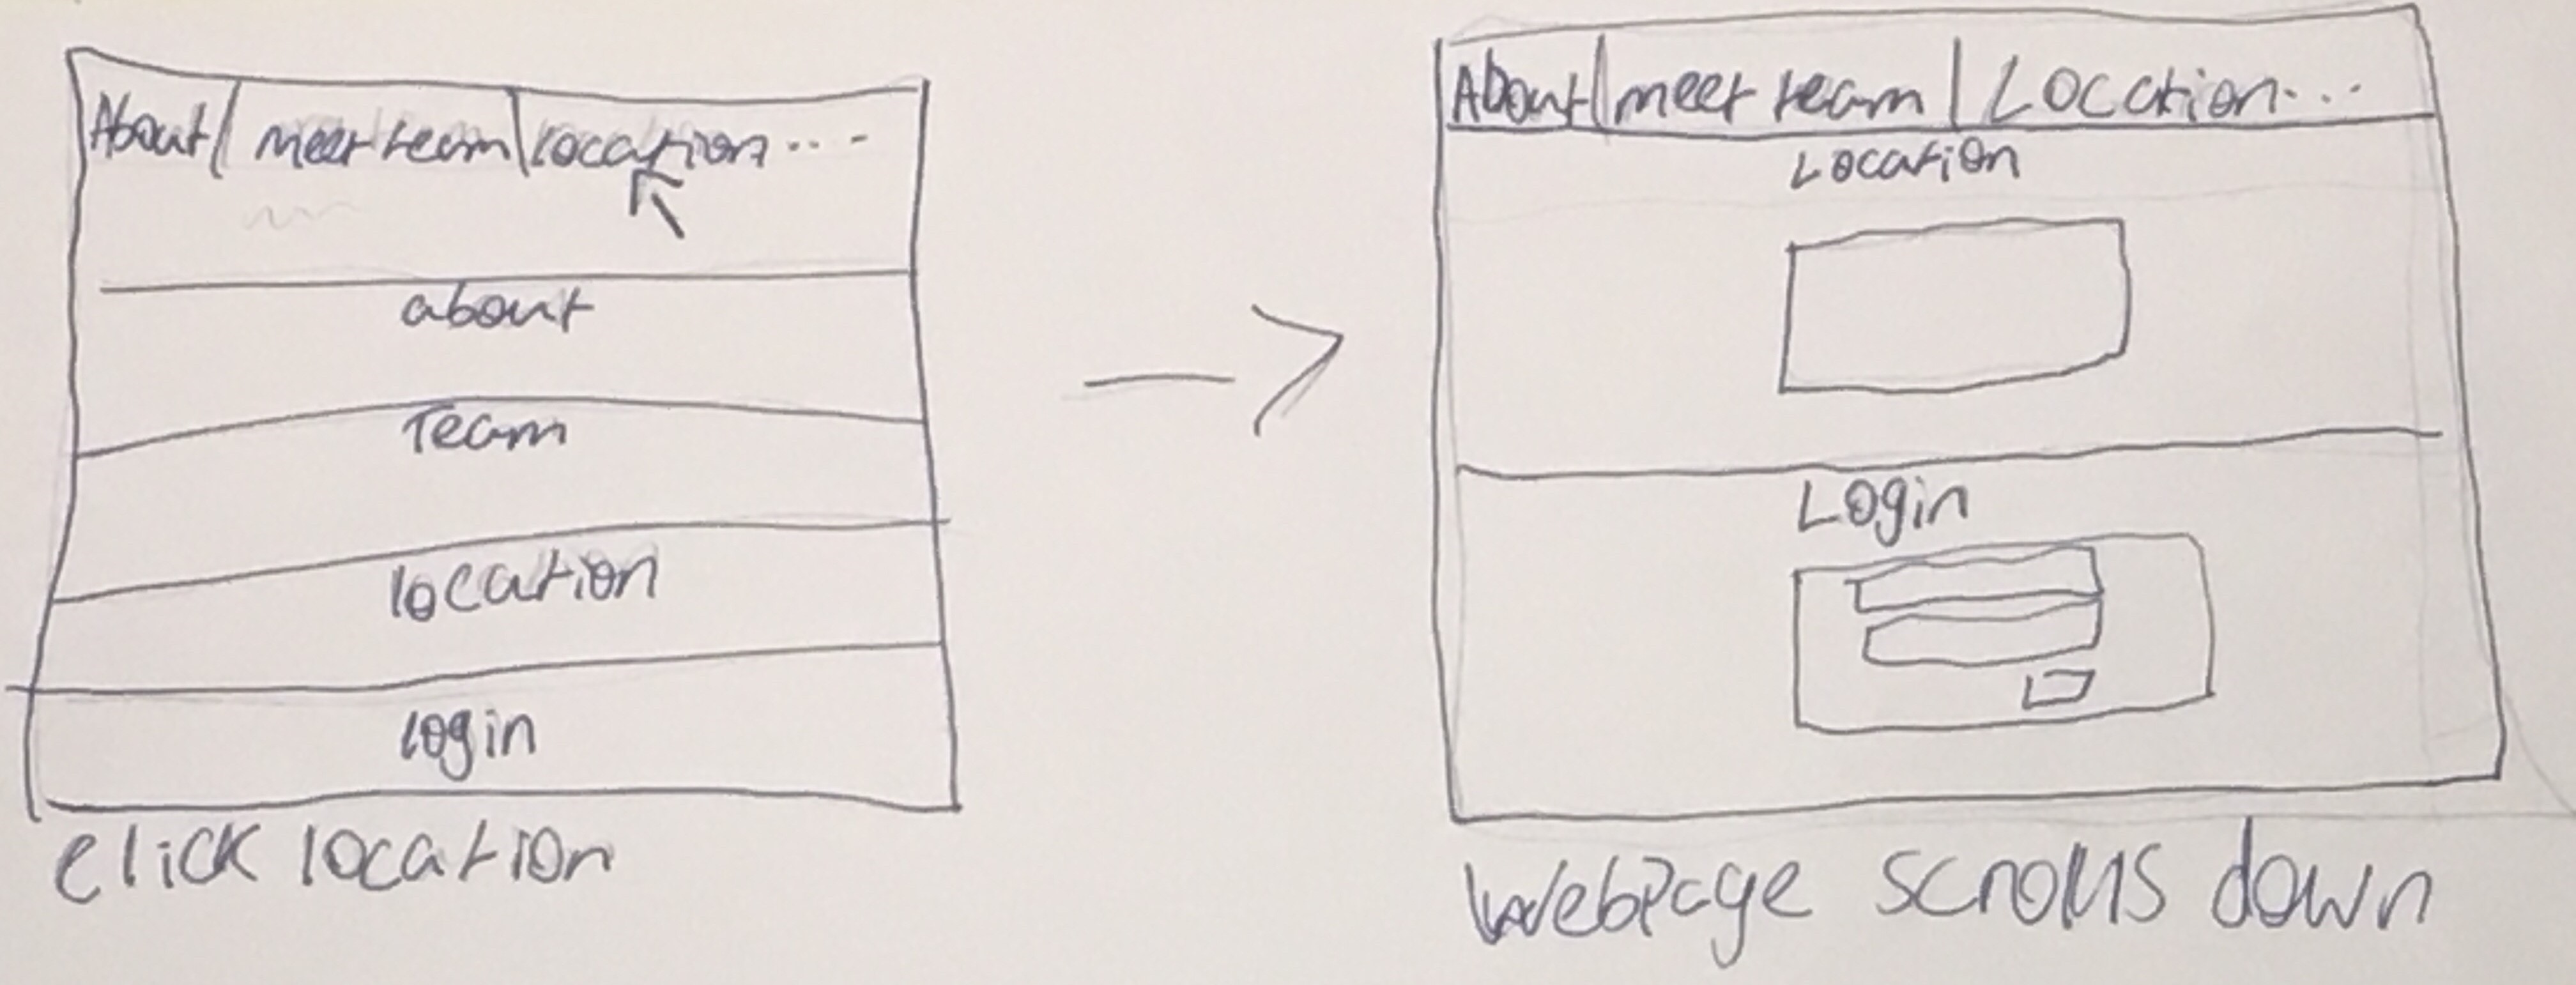 About | meet team | location...
about
Team
location
login
click location
About | meet team | Location...
Location
Login
Webpage scrolls down